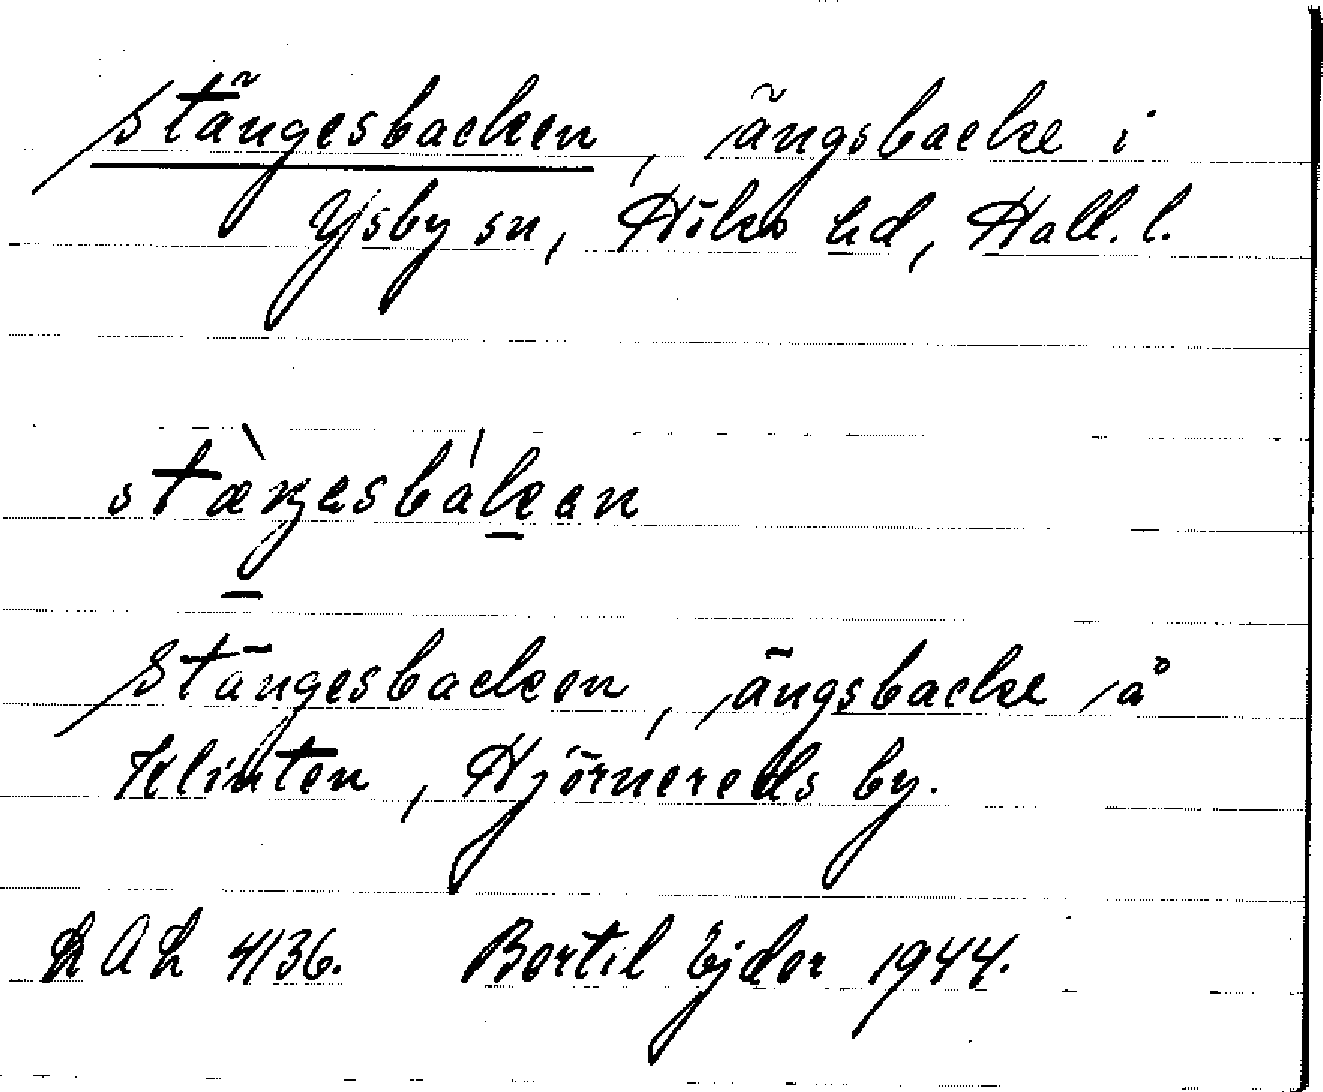 Stängesbacken, ängsbacke i
Ysby sn, Höks hd, Hall. l.
stæŋesbaken
Stängesbacken, ängsbacke å
Klinten, Hjörnereds by.
LAL 4136. Bertil Ejder 1944.